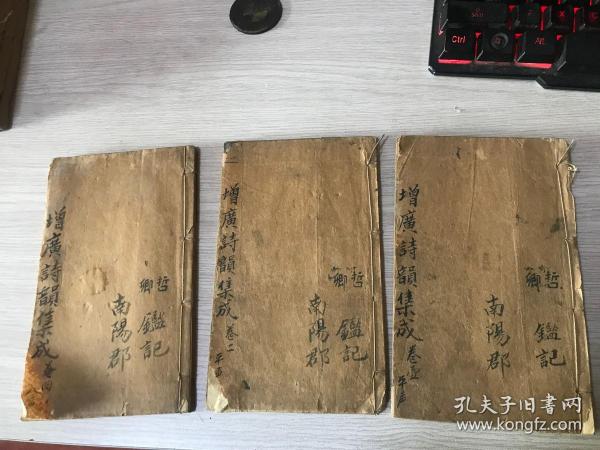 增廣詩韻集成 卷四
哲卿 鑑記
南陽郡
增廣詩韻集成 卷二 平声
哲卿 鑑記
南陽郡
增廣詩韻集成 卷五
哲卿 鑑記
南陽郡
Ctrl
孔夫子旧書网
www.kongfz.com